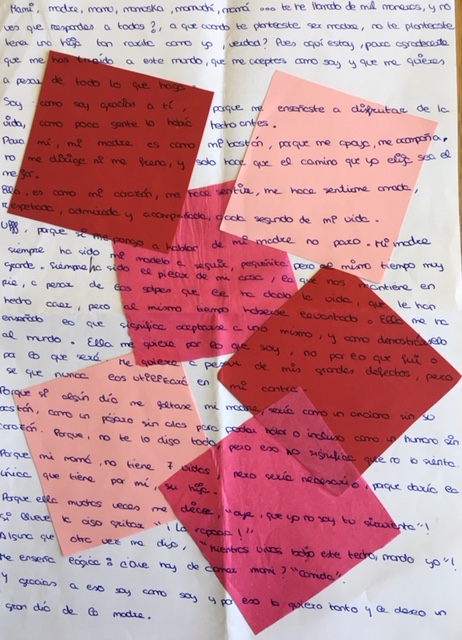 Mami, madre, mama, mamaska, mamachi, mamá ... te he llamado de mil maneras, y no
ves que respondes a todas?, a que cuando te planteaste ser madre, no te planteaste
tener una hija tan rarita como yo, verdad? Pues aquí estoy, para agradecerte
que me has traido a este mundo, que me aceptas como soy y que me quieres
a pesar de todo lo que haga.
Soy como soy gracias a ti, porque me enseñaste a disfrutar de la
vida, como poca gente lo había hecho antes.
Para mí, mi madre es como mi bastón, porque me apoya, me acompaña,
no me dirige ni me frena, y solo hace que el camino que yo elija sea el
mejor.
Ella, es como mi corazón, me hace sentir, me hace sentirme amada,
respetada, admirada y acompañada, cada segundo de mi vida.
Uff, porque si me pongo a hablar de mi madre no paro. Mi madre
siempre ha sido mi modelo a seguir, pequeñita pero al mismo tiempo muy
grande. Siempre ha sido el pilar de mi casa, la que nos mantiene en
pie, a pesar de los golpes que le ha dado la vida, que le han
hecho caer, pero al mismo tiempo haberse levantado. Ella me ha
enseñado lo que significa aceptarse uno mismo, y como demostrárselo
al mundo. Ella me quiere por lo que soy, no por lo que fui o
por lo que seré. Me quiere a pesar de mis grandes defectos, pero
se que nunca los utilizará en mi contra.
Porque si algún día me faltase mi madre, sería como un anciano sin su
bastón, como un pájaro sin alas para poder volar o incluso como un humano sin
corazón. Porque, no te lo digo todo, pero eso no significa que no lo sienta.
Porque mi mamá, no tiene 7 vidas, pero si sería necesario, daría la
única que tiene por mí, su hija.
Porque ella muchas veces me dice, "oye, que yo no soy tu sirvienta"!
Si llueve la oigo gritar "¡La ropaaa!!"
Alguna que otra vez me dijo, "mientras vivas bajo este techo, mando yo"!
Me enseña lógica: ¿Que hay de comer mami? "Comida".
Y gracias a eso soy como soy y por eso la quiero tanto y le deseo un
gran día de la madre.